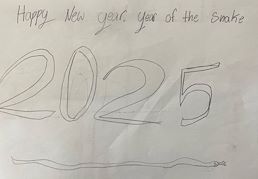 Happy New year, year of the snake
2025